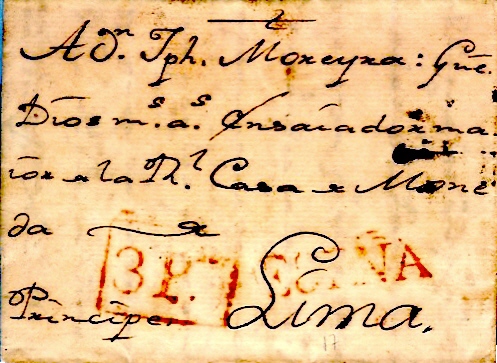 A Dn. Jph. Moreyra: Gūe.
Dios ms. as. Ensaiador ma
ior e la Rl. Casa e Mone
da
3 P.
Principe Lima.
17